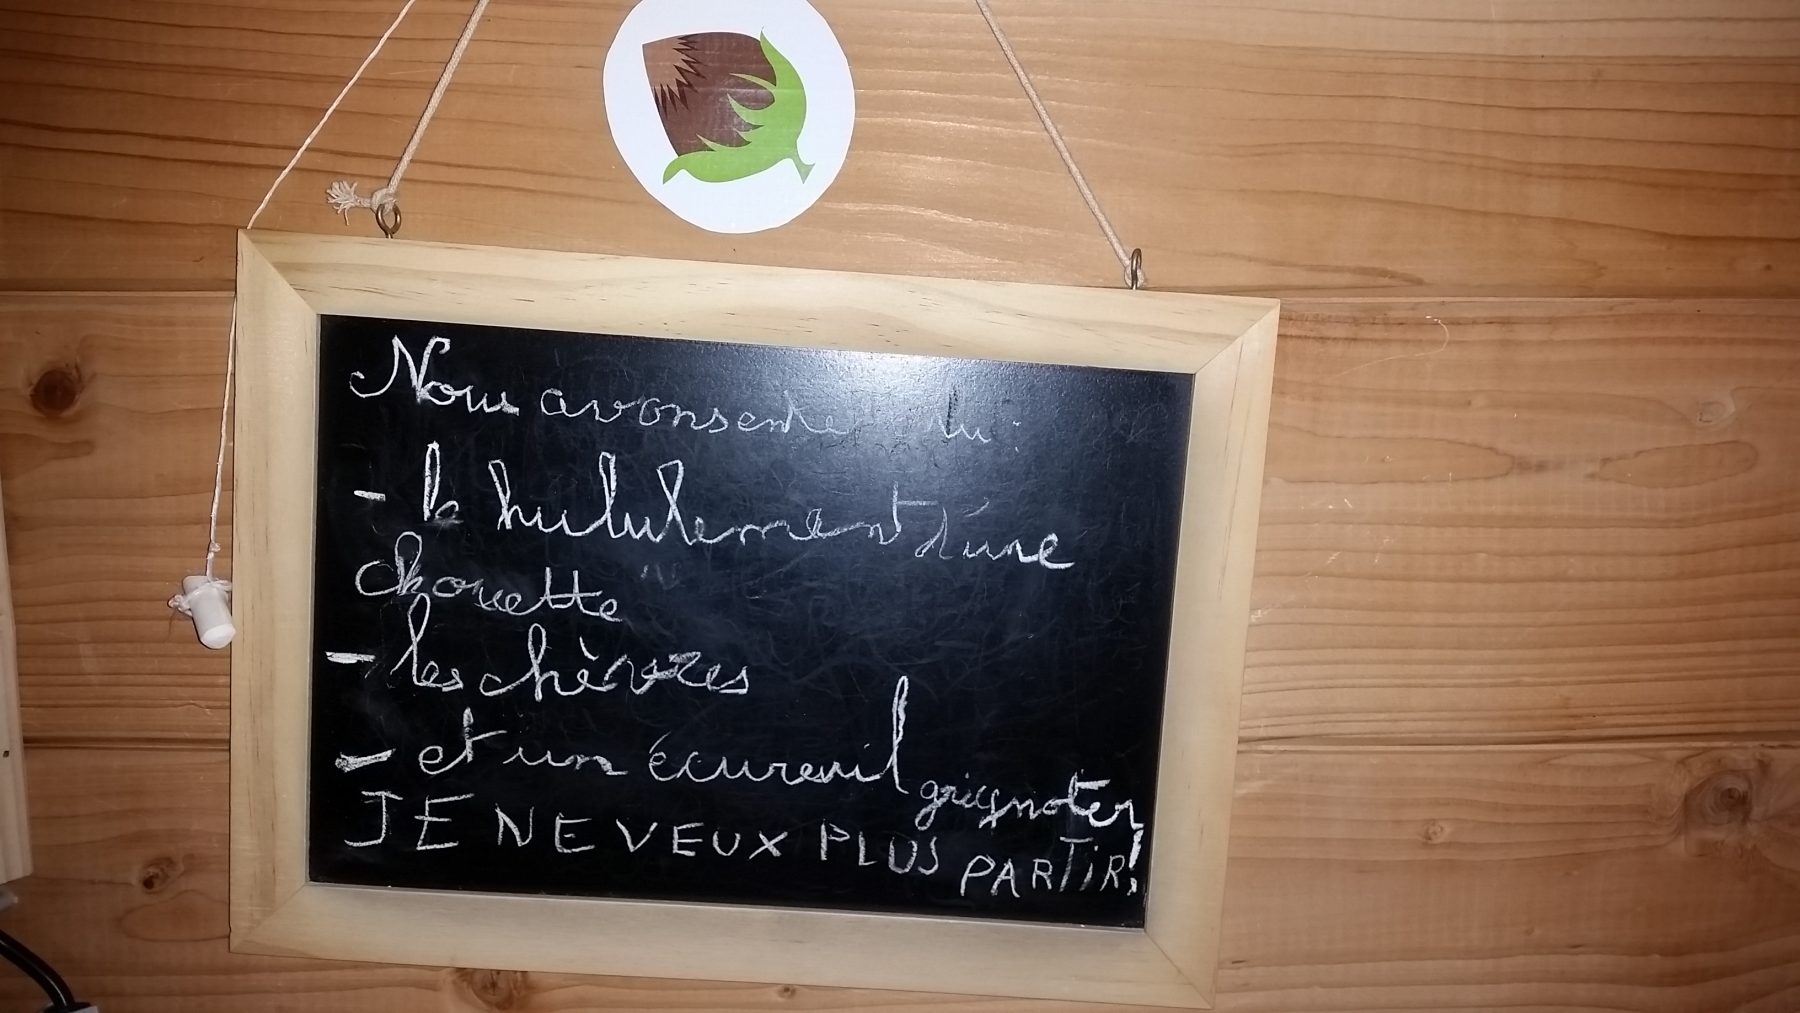 Nous avons ente lu :
- le hululement d'une
chouette
- les chèvres
- et un écureuil grignoter
JE NE VEUX PLUS PARTIR!